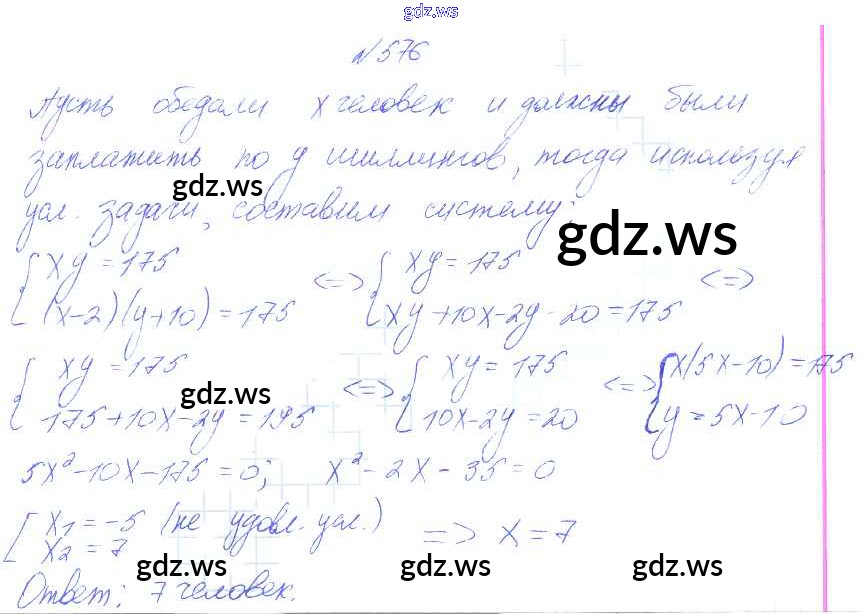 gdz.ws
№576
Пусть обедали x человек и должны были
заплатить по y шиллингов, тогда используя
gdz.ws
усл. задачи, составим систему:
gdz.ws
{ xy = 175 <=> { xy = 175 <=>
(x-2)(y+10) = 175 xy+10x-2y-20=175
{ xy = 175 <=> { xy = 175 <=> { x(5x-10)=175
gdz.ws
175+10x-2y=195 10x-2y=20 y=5x-10
5x²-10x-175=0; x²-2x-35=0
[ x₁=-5 (не удовл. усл.) => x=7
x₂=7
gdz.ws gdz.ws gdz.ws
Ответ: 7 человек.